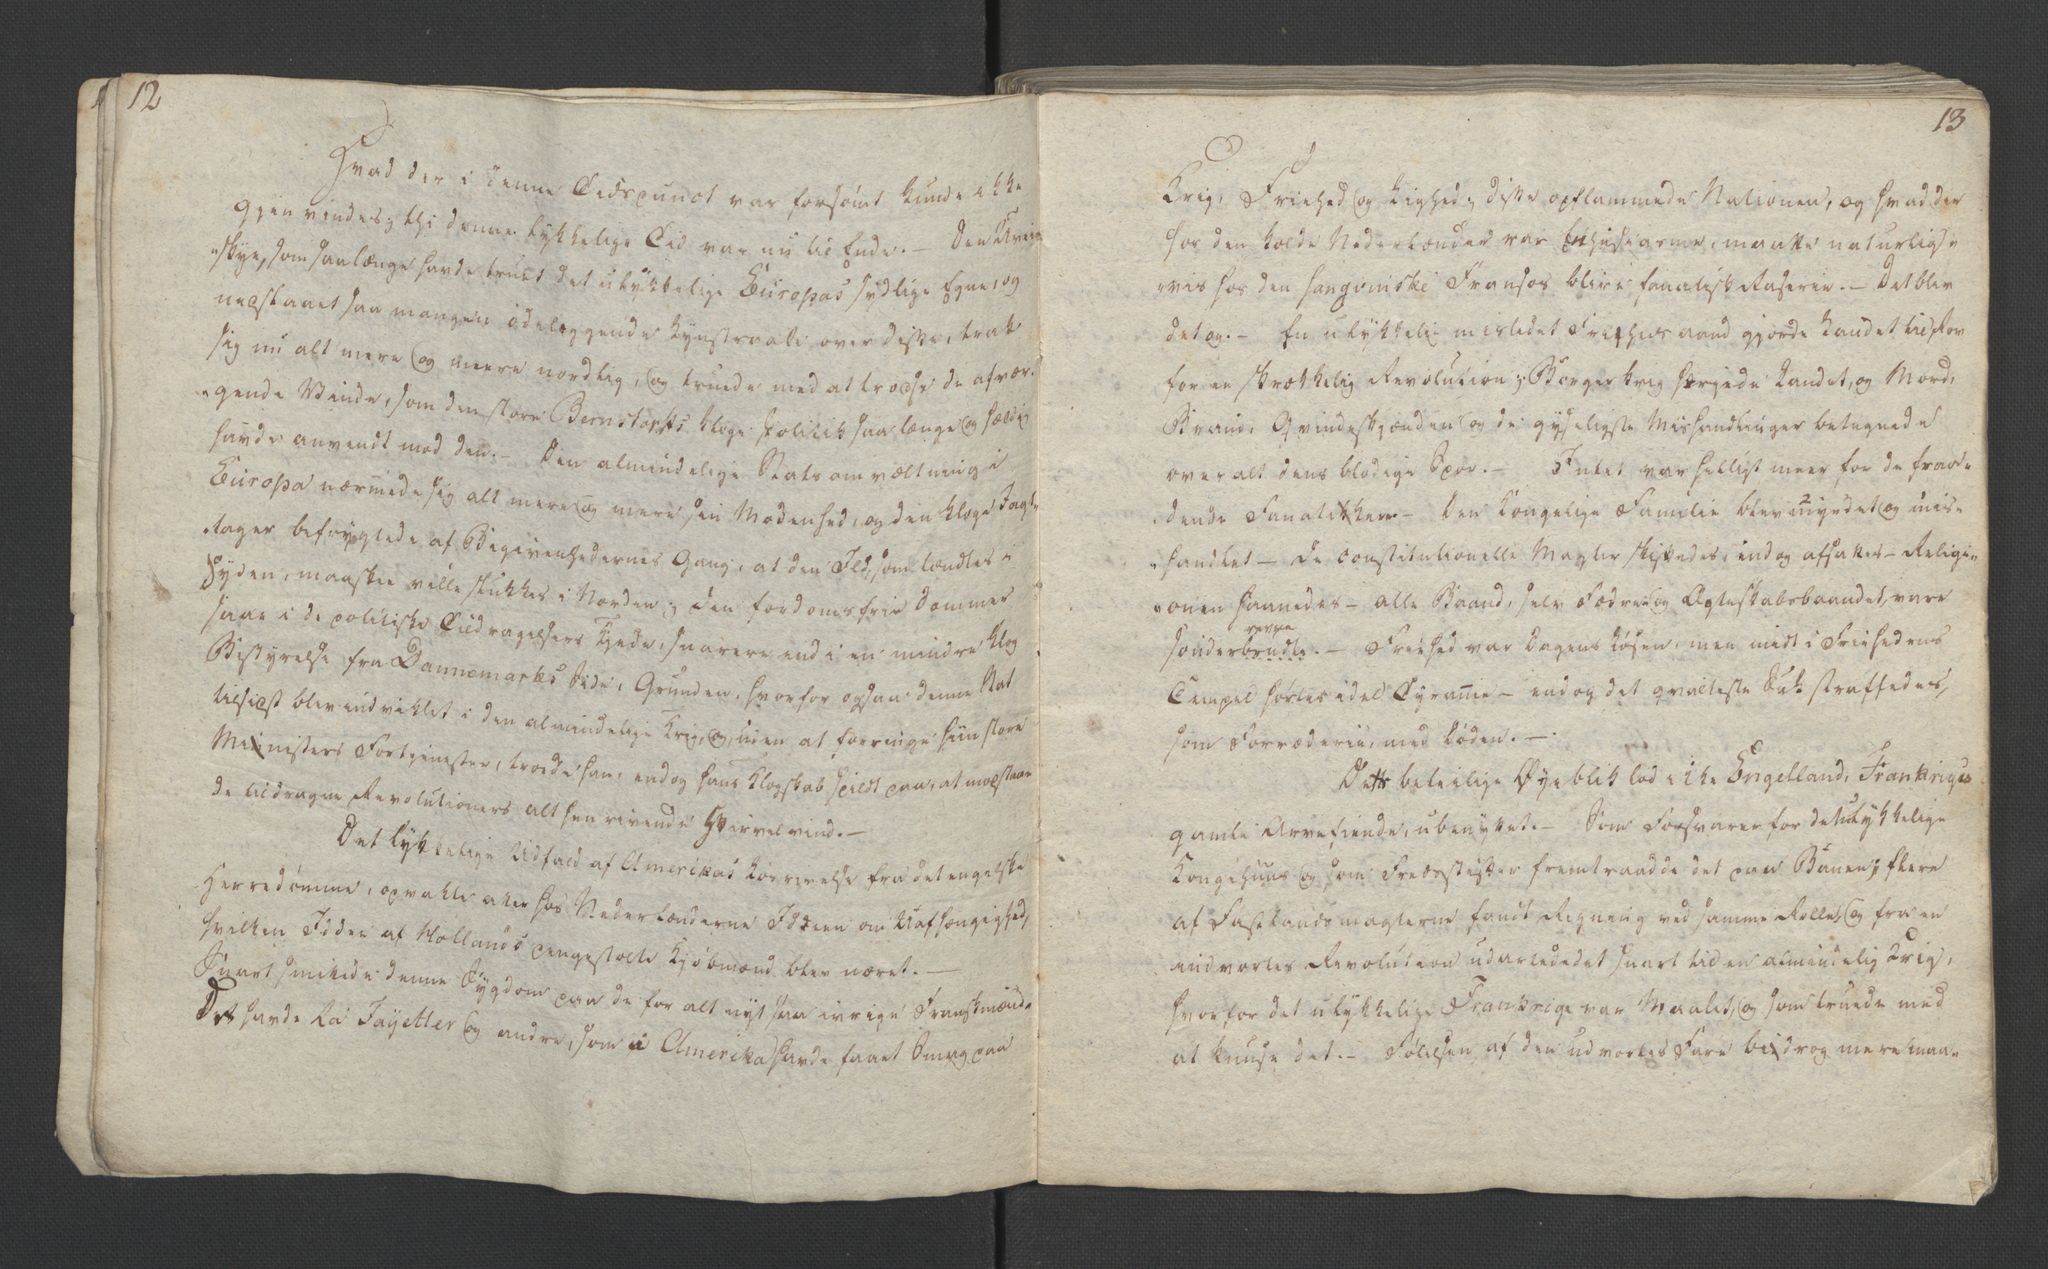 12
Hvad der i denne Tidspunct var forsömt kunde ikke
gjenvindes; thi denne lykkelige Tid var nu til Ende. — Den Uveir-
"skye, som saalænge havde truet det ulykkelige Europas sydlige Egne, og
udstaaet saa mangen ödelæggende Lynstraale over disse, trak
sig nu alt mere og meere nordlig, og truede med at trodse de afvær-
"gende Vinde, som den store Bernstorffs kloge Politik saa længe og heldig
havde anvendt mod den. — Den almindelige Statsomvæltning i
Europa nærmede sig alt mere og mere sin Modenhed, og den kloge Iagt-
"tager befrygtede af Begivenhedernes Gang, at den Ild, som tændtes i
Syden, maaskee ville slukkes i Norden; den fordomsfrie Dommer
saae i de politiske Tildragelsers Kjede, snarere end i en mindre klog
Bestyrelse fra Dannemarks Side, Grunden, hvorfor ogsaa denne Stat
tilsidst blev indviklet i den almindelige Krig, og, uden at forringe hiin store
Ministers Fortjenester, troede han, endog hans Klogskab spildt paa, at modstaae
de tildragne Revolutioners alt henrivende Hvirvelvind. —
Det lykkelige Udfald af Amerikas Lösrivelse fra det engelske
Herredömme, opvakte atter hos Nederlænderne Ideen om Uafhængighed,
hvilken Idee af Hollands pengestolte Kjöbmænd blev næret. —
Snart smittede denne Sygdom paa de for alt nyt saa ivrige Franskmænd.
Det havde La Fayetter og andre, som i Amerika havde faaet Smag paa
13
Krig. Friehed og Lighed; disse opflammede Nationen, og hvad der
hos den kolde Nederlænder var Enthusiasme, maatte naturlig-
viis hos den sangvinske Fransos blive fanatisk Raserie. — Det blev
det og. — En ulykkelig misledet Frihedsaand gjorde Landet til Rov
for en skrækkelig Revolution; Borgerkrig hærjede Landet, og Mord,
Brand, Qvindeskjænden og de gyseligste Mishandlinger betegnede
overalt dens blodige Spor. — Intet var helligt meer for de fraa-
"dende Fanatikere — Den Kongelige Familie blev myrdet og mis-
"handlet — De constitutionelle Magter skiftedes, endog afsattes — Religi-
"onen haanedes — alle Baand, selv Fædrene og Ægteskabsbaandet, vare
revne
sönderbrudte. — Friehed var Dagens Løsen, men midt i Friehedens
Tempel hørtes idel Tyrannie — endog det qvalteste Suk straffedes,
som Forræderie, med Döden. —
Dette beleilige Öyeblik lod ikke Engelland, Frankriges
gamle Arvefiende, ubenyttet. — Som Forsvarer for det ulykkelige
Kongehuus og som Fredsstifter fremtraadde det paa Banen; flere
af Fastlandsmagterne fandt Regning ved samme Rolle, og fra en
indvortes Revolution udartede det snart til en almindelig Krig,
hvorfor det ulykkelige Frankrige var Maalet, og som truede med
at knuse det. — Fölelsen af den udvortes Fare bidrog mere maa-